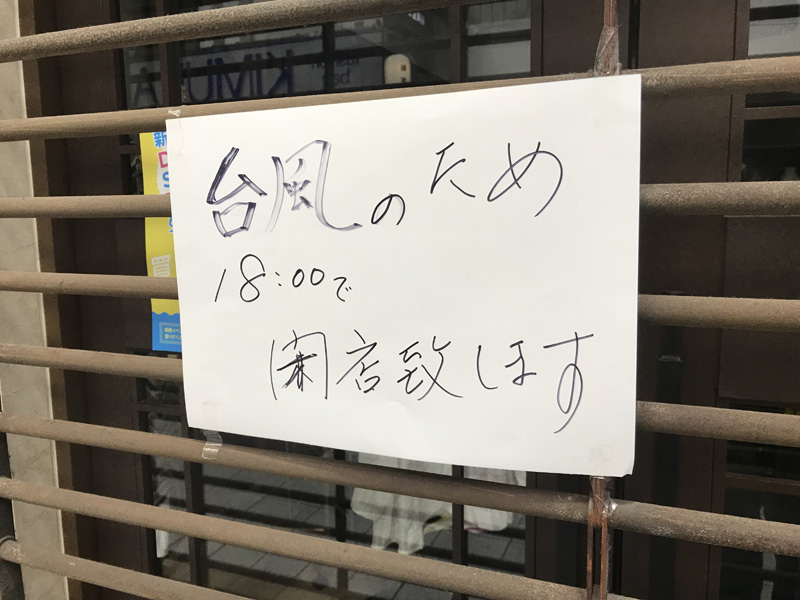 台風のため
18:00で
閉店致します
KIMU
新